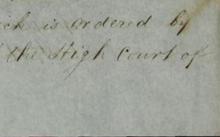 ch is ordered by
the High Court of